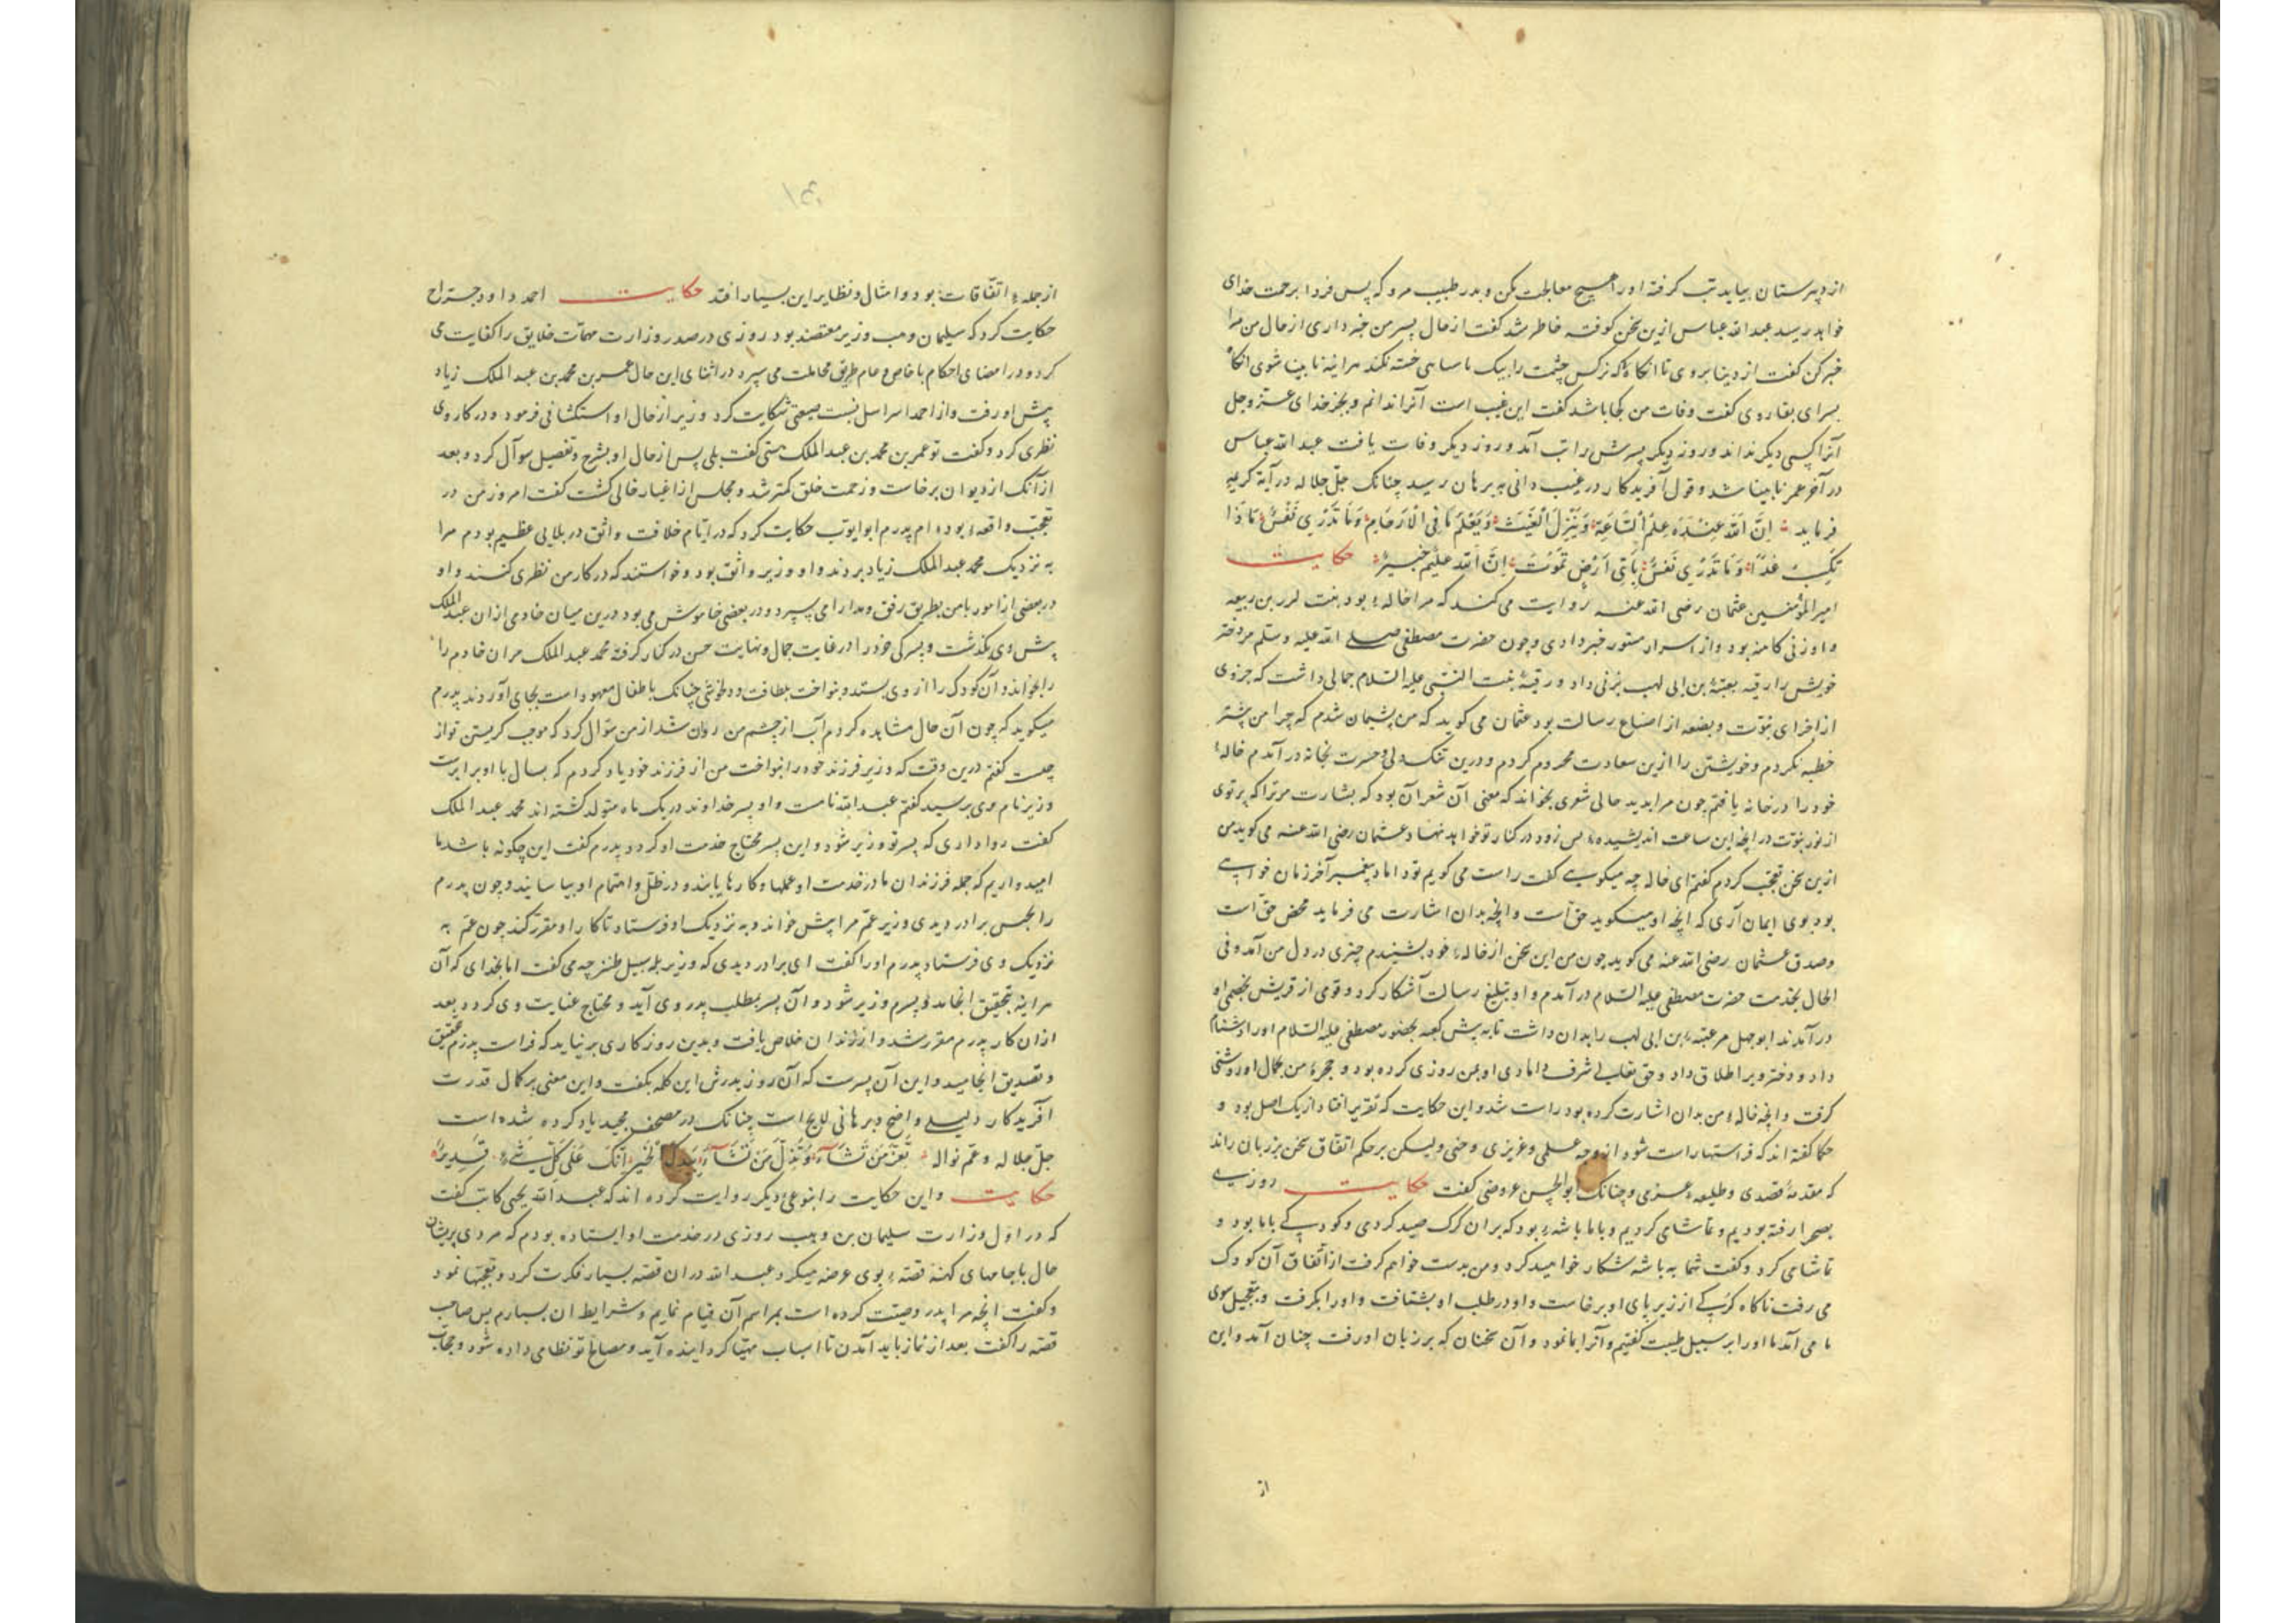 از دبیرستان بیاید تب گرفته او را هیچ معالجت مکن و بدر طبیب مرو که پس فردا برحمت خدای
خواهد رسید عبد الله عباس ازین سخن کوفته خاطر شد گفت از حال پسر من خبر داری از حال من مرا
خبر کن گفت از دنیا نروی تا انگاه که نرکس چشمت را پیک تا سیاهی خسته نکند هراینه نابینا شوی انگاه
بسرای بقا روی گفت وفات من کجا باشد گفت این غیب است آنرا ندانم و بجز خدای عز وجل
آنرا کسی دیکر نداند و روز دیکر پسرش را تب آمد و روز دیکر وفات یافت عبد الله عباس
در آخر عمر نابینا شد و قول آفریدکار در غیب دانی به برهان رسید چنانک جل جلاله در آیة کریمه
فرماید اِنَّ اللهَ عِنْدَهُ عِلْمُ السَّاعَةِ وَيُنَزِّلُ الْغَيْثَ وَيَعْلَمُ مَا فِي الْاَرْحَامِ وَمَا تَدْرِي نَفْسٌ مَاذَا
تَكْسِبُ غَدًا وَمَا تَدْرِي نَفْسٌ بِاَيِّ اَرْضٍ تَمُوتُ اِنَّ اللهَ عَلِيمٌ خَبِيرٌ حکایت
امیر المؤمنین عثمان رضی الله عنه روایت می کند که مرا خالهٔ بود بنت کرز بن ربیعه
و او زنی کاهنه بود و از اسرار مستور خبر دادی و چون حضرت مصطفی صلی الله علیه وسلم مر دختر
خویش را رقیه بعتبهٔ بن ابی لهب بزنی داد و رقیهٔ بنت النبی علیه السلام جمالی داشت که جزوی
از اجزای نبوت و بضعه از رسالت بود عثمان می کوید که من پشیمان شدم که چرا من پیشتر
خطبه نکردم و خویشتن را ازین سعادت محروم کردم و درین تنک دلی و حسرت بخانه در آمدم خالهٔ
خود را در خانه یافتم چون مرا بدید حالی شعری بخواند که معنی آن شعر آن بود که بشارت مر ترا که پرتوی
از نور نبوت در انچه این ساعت اندیشیدهٔ پس زود در کنار تو خواهد نهاد عثمان رضی الله عنه می کوید من
ازین سخن تعجب کردم گفتم ای خاله چه میکویی گفت راست می کویم تو داماد پیغمبر آخر زمان خواهی
بود بوی ایمان آری که انچه او میکوید حق است و انچه بدان اشارت می فرماید محض حق است
و صدق عثمان رضی الله عنه می کوید چون من این سخن از خالهٔ خود بشنیدم چیزی در دل من آمد و فی
الحال بخدمت حضرت مصطفی علیه السلام در آمدم و او تبلیغ رسالت آشکار کرد و قومی از قریش بخصمی او
در آمدند ابو جهل مر عتبهٔ بن ابی لهب را بدان داشت تا به پیش کعبه بحضور مصطفی علیه السلام او را دشنام
داد و دختر ویرا طلاق داد و حق تعالی شرف دامادی او بمن روزی کرده بود و حجرهٔ من بجمال او روشنی
کرفت و انچه خالهٔ من بدان اشارت کرده بود راست شد و این حکایت که تقریر افتاد از یک اصل بود و
حکما گفته اند که فراستها راست شود از وجه علمی و غریزی و وحی ولیکن بر حکم اتفاق سخن بر زبان راند
که مقدمهٔ قصدی و طلیعهٔ عزمی و چنانک ابو الحسن عروضی کفت حکایت روزی
بصحرا رفته بودیم و تماشای کردیم و با ما باشهٔ بود که بران کرک صید کردی و کودکی با ما بود و
تماشا می کرد و کفت شما به باشه شکار خواهید کرد و من بدست خواهم کرفت از اتفاق آن کودک
می رفت ناکاه کرکی از زیر پای او برخاست و او در طلب او بشتافت و او را بکرفت و بتعجیل سوی
ما می آمد ما او را بر سبیل طیبت گفتیم و آنرا بما نمود و آن سخنان که بر زبان او رفت چنان آمد و این
از
از جملهٔ اتفاقات بود و امثال و نظایر این بسیار افتد حکایت احمد داود جراح
حکایت کرد که سلیمان وهب وزیر معتضد بود روزی در صدر وزارت مهمات خلایق را کفایت می
کرد و در امضای احکام با خاص و عام طریق مجاملت می سپرد در اثنای این حال عمر بن محمد بن عبد الملک زیاد
پیش او رفت و از احمد اسراسل شکایت کرد وزیر از حال او استکشافی فرمود و در کار وی
نظری کرد و کفت تو عمر بن محمد بن عبد الملک هستی کفت بلی پس از حال او بشرح و تفصیل سوآل کرد و بعد
از آنک از دیوان برخاست و زحمت خلق کمتر شد و مجلس از اغیار خالی کشت کفت امروز من در
تعجب واقعهٔ بوده ام پدرم ابو ایوب حکایت کرد که در ایام خلافت واثق در بلایی عظیم بودم مرا
به نزدیک محمد عبد الملک زیاد بردند و او وزیر واثق بود و خواستند که در کار من نظری کنند و او
در بعضی از امور با من بطریق رفق و مدارا می سپرد و در بعضی خاموش می بود درین میان خادمی از ان عبد الملک
پیش وی بکذشت و پسرکی خرد را در غایت جمال و نهایت حسن در کنار کرفته محمد عبد الملک مر ان خادم را
را بخواند و آن کودک را از وی بستد و بنواخت بلطافت و دلخوشی چنانک با اطفال معهود است بجای آوردند پدرم
میکوید که چون آن حال مشاهده کردم آب از چشم من روان شد از من سؤال کرد که موجب کریستن تو از
چیست گفتم درین وقت که وزیر فرزند خود را بنواخت من از فرزند خود یاد کردم که بسال با او برابرست
وزیر نام وی پرسید کفتم عبد الله نامست و او و پسر خداوند در یک ماه متولد کشته اند محمد عبد الملک
کفت روا داری که پسر تو وزیر شود و این پسر محتاج خدمت او کردد پدرم کفت این چکونه باشد ما
امید داریم که جمله فرزندان ما در خدمت او عملها و کارها یابند و در ظل و اهتمام او بیاسایند و چون پدرم
را بحبس برادر دیدی وزیر عم مرا پیش خواند و به نزدیک او فرستاد تا کار او مقرر کند چون عم به
نزدیک وی فرستاد پدرم او را کفت ای برادر دیدی که وزیر بر سبیل طنز چه می کفت اما بخدای که آن
هراینه بتحقیق انجامد و پسرم وزیر شود و آن پسر بمطلب پدر وی آید و محتاج عنایت وی کردد بعد
از ان کار پدرم مقرر شد و از زندان خلاص یافت و بدین روزکاری برنیاید که فراست پدرم بتحقیق
و تصدیق انجامید و این آن پسرست که آن روز پدرش این کلمه بکفت و این معنی بر کمال قدرت
آفریدکار دلیلی واضح و برهانی لایح است چنانک در مصحف مجید یاد کرده شده است
جل جلاله و عم نواله تُعِزُّ مَنْ تَشَآءُ وَتُذِلُّ مَنْ تَشَآءُ بِيَدِكَ الْخَيْرُ اِنَّكَ عَلٰى كُلِّ شَیْءٍ قَدِيرٌ
حکایت و این حکایت را بنوعی دیکر روایت کرده اند که عبد الله یحیی کاتب کفت
که در اول وزارت سلیمان بن وهب روزی در خدمت او ایستاده بودم که مردی پریشان
حال با جامهای کهنه قصهٔ بوی عرضه میکرد عبد الله در ان قصه بسیار فکرت کرد و تعجبها نمود
و کفت انچه مرا پدر وصیت کرده است بمراسم آن قیام نمایم و شرایط ان بسپارم پس صاحب
قصه را کفت بعد از نماز باید آمدن تا اسباب مهیا کردانیده آید و مصالح تو نظامی داده شود و